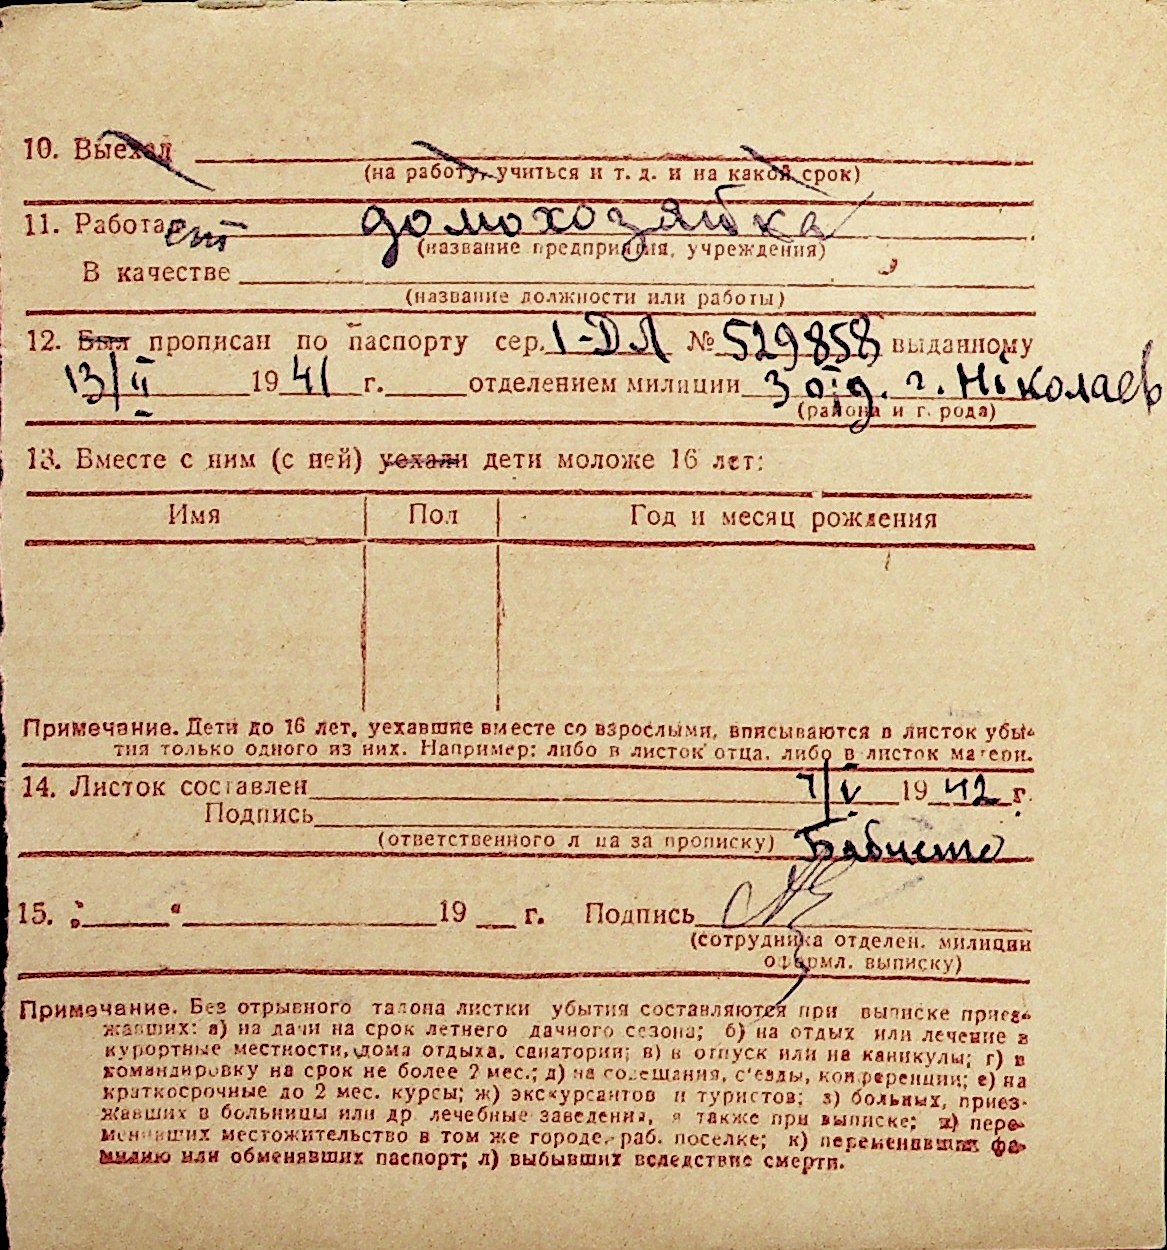 10. Выехал
(на работу, учиться и т. д. и на какой срок)
11. Работает домохозяйка
(название предприятия, учреждения)
В качестве
(название должности или работы)
12. Был прописан по паспорту сер. I-ДЛ № 529858 выданному
13/II 1941 г. отделением милиции 3 о/д. г. Ніколаев
(района и города)
13. Вместе с ним (с ней) уехали дети моложе 16 лет:
Имя Пол Год и месяц рождения
Примечание. Дети до 16 лет, уехавшие вместе со взрослыми, вписываются в листок убы-
тия только одного из них. Например: либо в листок отца, либо в листок матери.
14. Листок составлен 7/V 1942 г.
Подпись
(ответственного лица за прописку)
15. „ “ 19 г. Подпись
(сотрудника отделен. милиции
оформл. выписку)
Примечание. Без отрывного талона листки убытия составляются при выписке приез-
жавших: а) на дачи на срок летнего дачного сезона; б) на отдых или лечение в
курортные местности, дома отдыха, санатории; в) в отпуск или на каникулы; г) в
командировку на срок не более 2 мес.; д) на совещания, с'езды, конференции; е) на
краткосрочные до 2 мес. курсы; ж) экскурсантов и туристов; з) больных, приез-
жавших в больницы или др. лечебные заведения, а также при выписке; и) пере-
менивших местожительство в том же городе, раб. поселке; к) переменивших фа-
милию или обменявших паспорт; л) выбывших вследствие смерти.